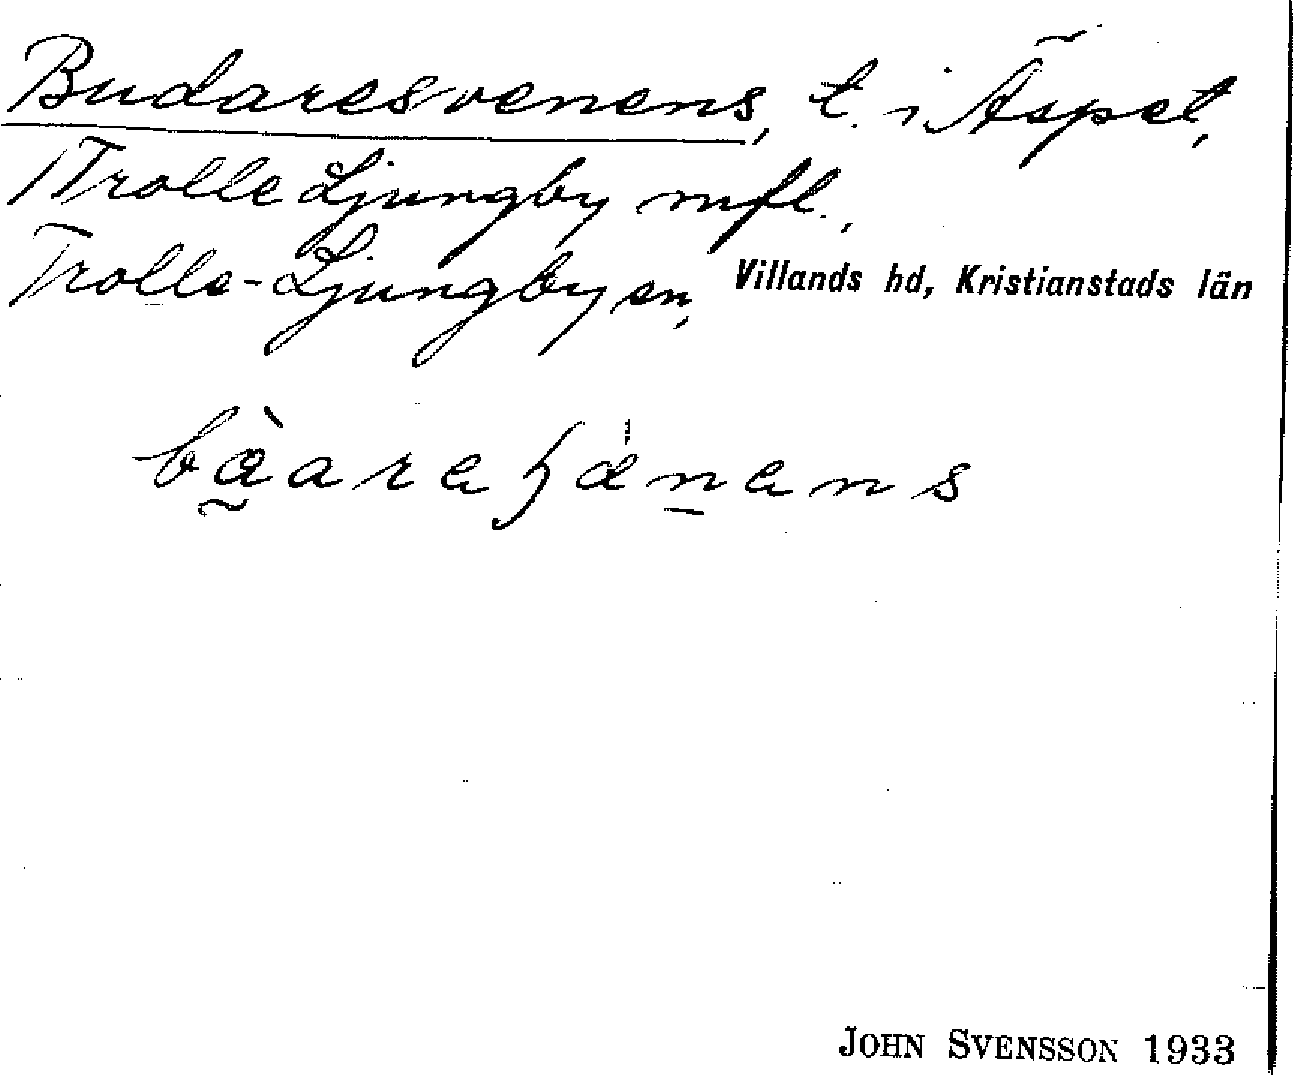 Budaresvenens, t. i Äspet,
Trolle Ljungby mfl.,
Trolle-Ljungby sn, Villands hd, Kristianstads län
JOHN SVENSSON 1933